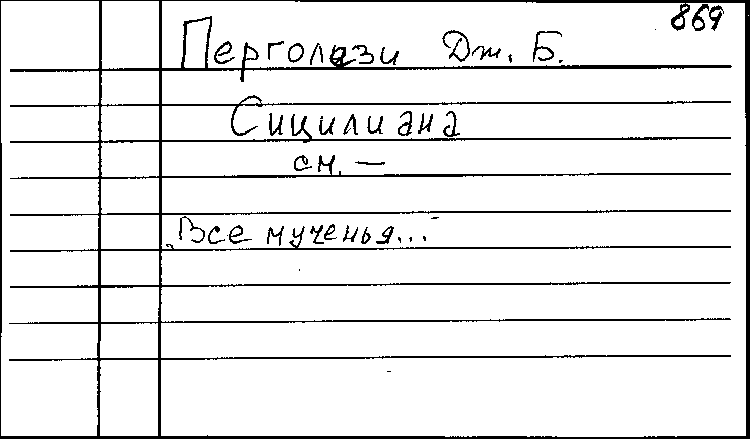 869
Перголези Дж. Б.
Сицилиана
см. —
„Все мученья..."